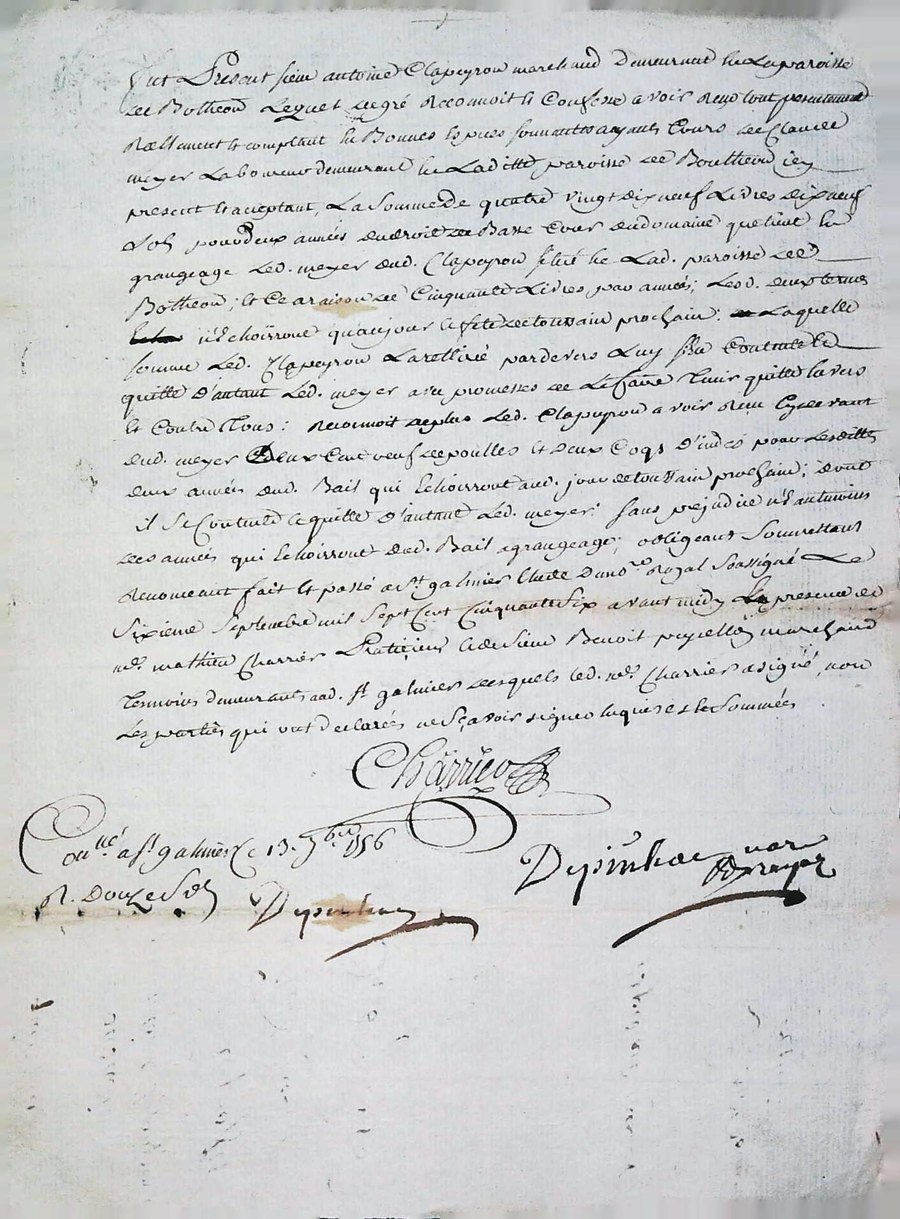 fut Present sieur antoine Clapeyron marchand Demeurant En La paroisse
de Botheon Lequel de gré Reconnoit et Confesse avoir Reçu tout presentement
Reellement et comptant En Bonnes Especes sonnantes ayant Cours de Claude
meyer Laboureur demeurant En Laditte paroisse de Boutheon icy
present et acceptant, La Somme de quatre vingt dix neuf Livres dix neuf
sols pour deux années du droit de Basse Cour du domaine que tient En
grangeage Led. meyer dud. Clapeyron situé En Lad. paroisse de
Botheon; Et Ce a raison de Cinquante Livres par année; Lesd. deux termes
n'Echoirront qu'au jour et fete de toussain prochain: Laquelle
somme Led. Clapeyron La rettiré pardevers Luy s'En Contente Et
quitte D'autant Led. meyer avec promesses de Le faire Tenir quitte Envers
Et Contre Tous: Reconnoit de plus Led. Clapeyron avoir Reçu Cy devant
dud. meyer Deux Cent oeufs de poulles Et deux Coqs D'indes pour Lesdittes
deux années dud. Bail qui Echoirront aud. jour de toussain prochain; dont
il se Contente Et quitte D'autant Led. meyer: sans prejudice n'Eantmoins
des années qui Echoirront dud. Bail a grangeage; obligeant Soumettant
Renonceant fait Et passé a St galmier Etude du nore. Royal Soussigné Le
Sixieme Septembre mil Sept Cent Cinquante Six avant midy En presence de
me. mathieu Charrier Praticien Et de sieur Benoit marchand
Temoins demeurants aud. St galmier desquels led. me. Charrier a signé, non
Les parties qui ont declarés ne Sçavoir signer Enquises Et Sommées
Charrier
Conllé a St galmier Le 13. 7bre 1756
R. Douze Sols
Depinhac
Depinhac